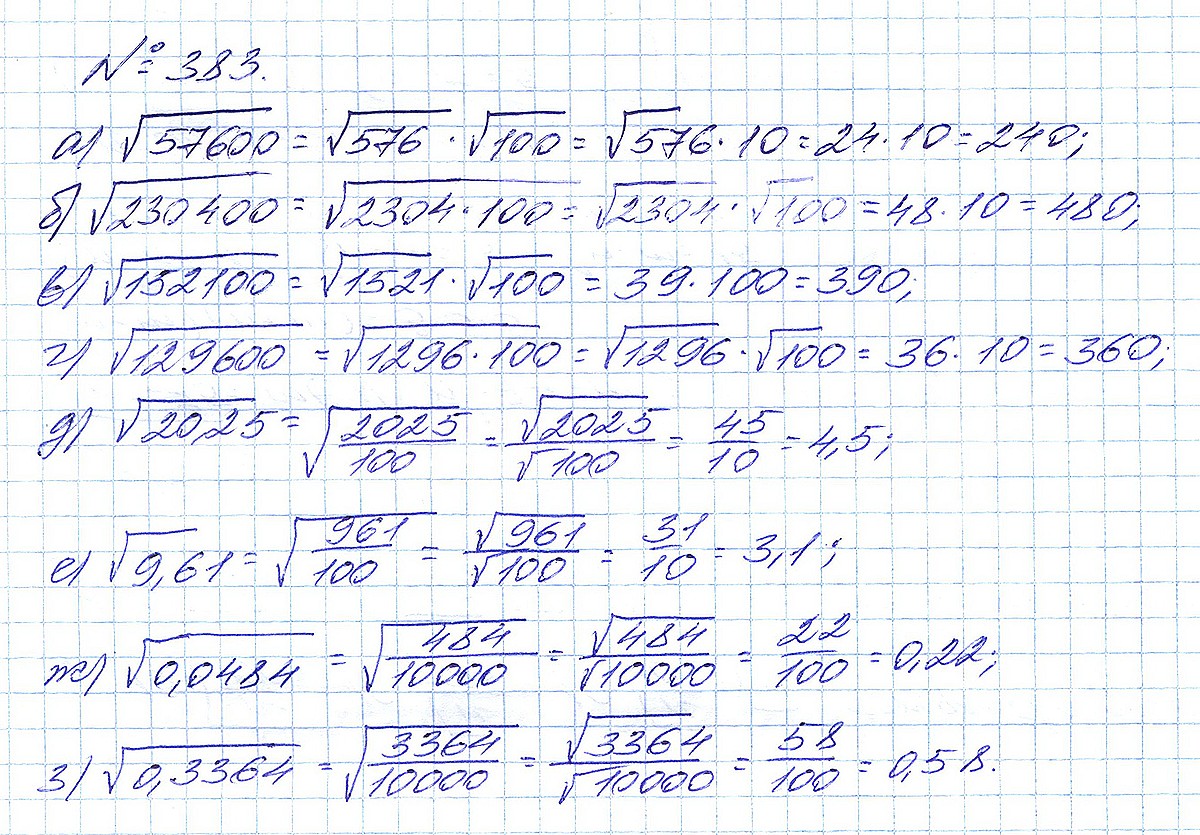 № 383.
а) √57600 = √576 · √100 = √576 · 10 = 24 · 10 = 240;
б) √230400 = √2304 · 100 = √2304 · √100 = 48 · 10 = 480;
в) √152100 = √1521 · √100 = 39 · 100 = 390;
г) √129600 = √1296 · 100 = √1296 · √100 = 36 · 10 = 360;
д) √20,25 = √2025/100 = √2025/√100 = 45/10 = 4,5;
е) √9,61 = √961/100 = √961/√100 = 31/10 = 3,1;
ж) √0,0484 = √484/10000 = √484/√10000 = 22/100 = 0,22;
з) √0,3364 = √3364/10000 = √3364/√10000 = 58/100 = 0,58.